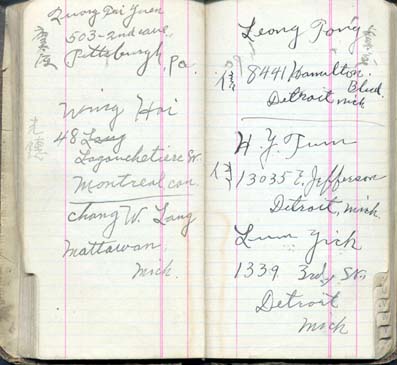 Quong Dai Yuen
503-2nd ave.
Pittsburgh, Pa.
Wing Hoi
48 Lag
Lagauchetiere St.
Montreal can.
Chang W. Lang
Mattawan
Mich.
Leong Tong
8441 Hamilton
Blvd.
Detroit mich
H. Y. Tum
13035 E. Jefferson
Detroit, Mich.
Lum Yick
1339 3rd St.
Detroit
Mich